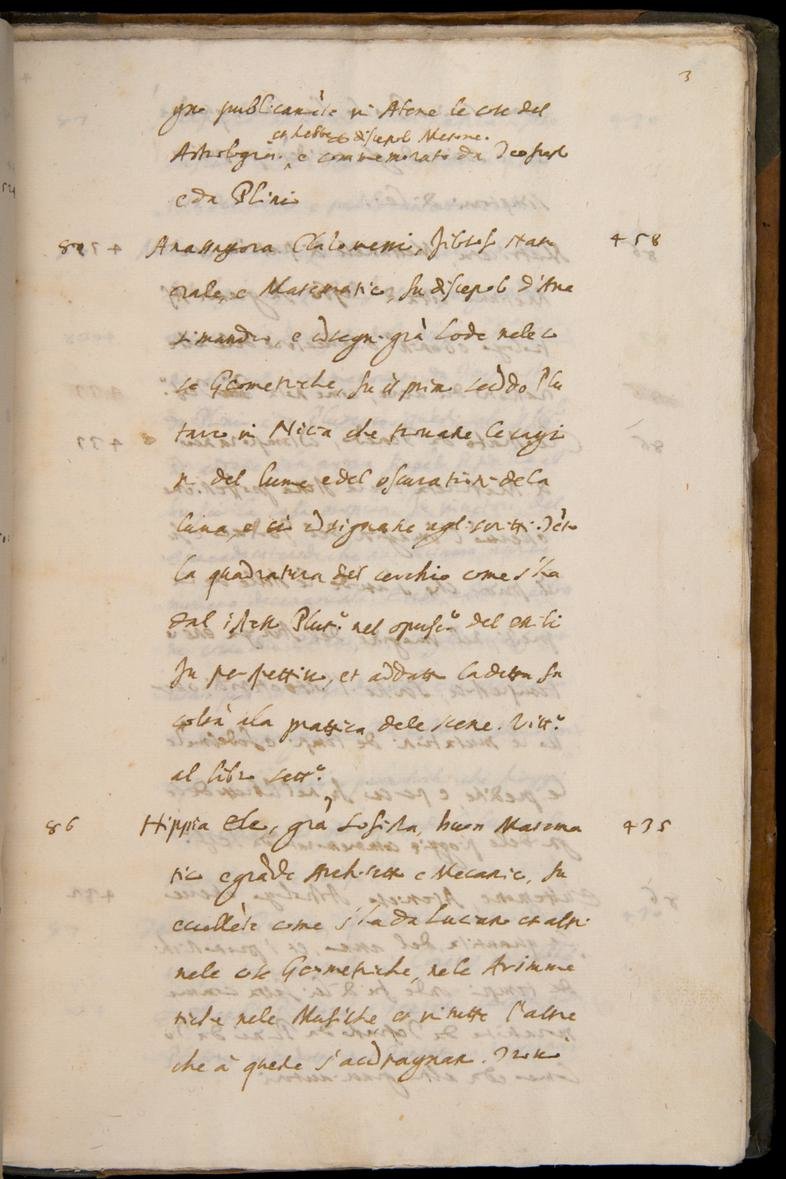 3
gnò publicamẽte in Atene le cose del
et hebbe discepol Metone.
Astrologia, e commemorato da Teofrast
e da Plinio
Anassagora Clazomenio, filosofo natu
458
rale, e Matematico, fu discepolo d'Ana
simandro, e cõsegui grã Lode nele co
se Geometriche, fu il primo secõdo Plu
tarco in Nicia che trouare le cagi
ni del lume e del oscuration dela
luna, e ciò cõsignare agli scritti.
la quadratura del cerchio come s'ha
dal istesso Plut.º nel opusc.º del esili
fu perspettiuo, et addattò la detta fa
coltà ala prattica dele scene. Vitr.º
al libro sett.º
86
Hippia Eleo, grã Sofista, buon Matema
435
tico e grãde Architetto e Mecanico, fu
eccellẽte come s'ha da Luciano et altri
nele cose Geometriche, nele Arimme
tiche nele Musiche et in tutte l'altre
che à queste s'accõpagnano.